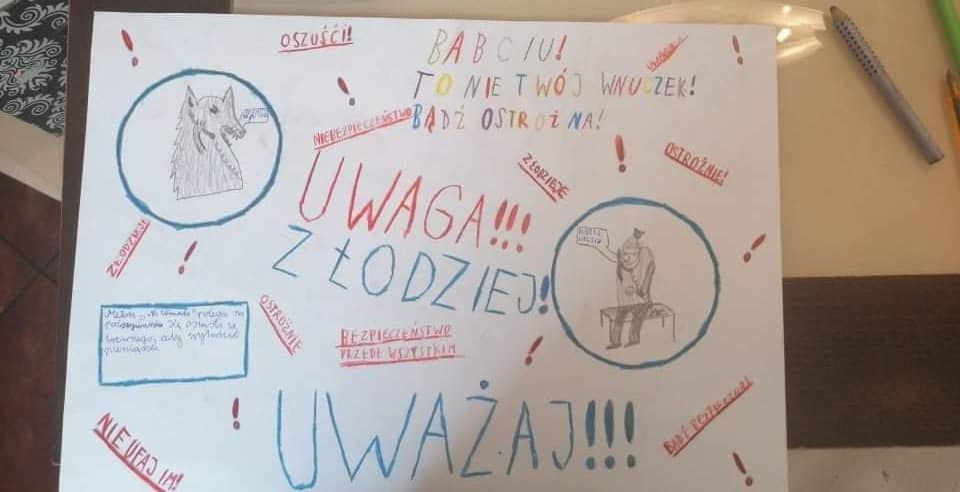 OSZUŚCI!
BABCIU!
TO NIE TWÓJ WNUCZEK!
BĄDŹ OSTROŻNA!
NIEBEZPIECZEŃSTWO
OSTROŻNIE!
ZŁODZIEJE
UWAGA!!!
ZŁODZIEJ!
ZŁODZIEJE
OSTROŻNIE
BEZPIECZEŃSTWO
PRZEDE WSZYSTKIM
Metoda „Na Wnuczka" polega na
się osoba za
krewnego, aby wyłudzić
pieniądze
UWAŻAJ!!!
NIE UFAJ IM!
BĄDŹ